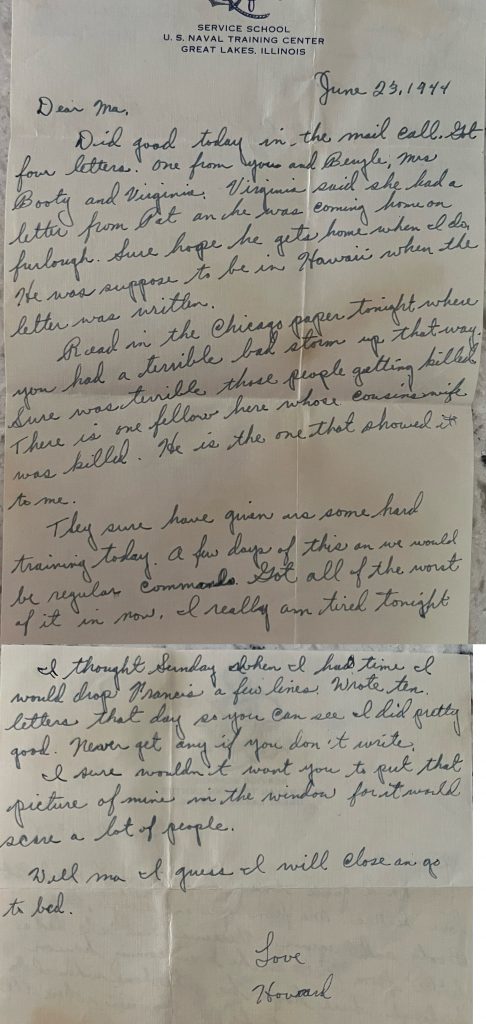 SERVICE SCHOOL
U. S. NAVAL TRAINING CENTER
GREAT LAKES, ILLINOIS
June 23, 1944
Dear Ma,
Did good today in the mail call. Got
four letters. One from you and Beugle, Mrs
Booty and Virginia. Virginia said she had a
letter from Pat an he was coming home on
furlough. Sure hope he gets home when I do.
He was suppose to be in Hawaii when the
letter was written.
Read in the Chicago paper tonight where
you had a terrible bad storm up that way.
Sure was terrible those people getting killed.
There is one fellow here whose cousins wife
was killed. He is the one that showed it
to me.
They sure have given us some hard
training today. A few days of this an we would
be regular commandos. Got all of the worst
of it in now. I really am tired tonight
I thought Sunday when I had time I
would drop Francis a few lines. Wrote ten
letters that day so you can see I did pretty
good. Never get any if you don't write.
I sure wouldn't want you to put that
picture of mine in the window for it would
scare a lot of people.
Well ma I guess I will close an go
to bed.
Love
Howard